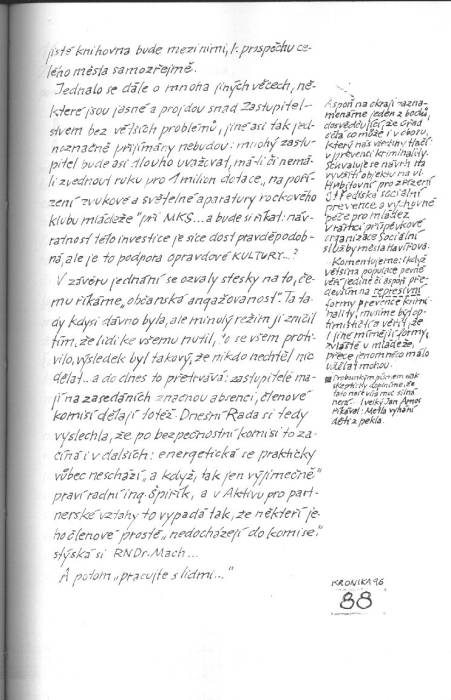 jisté knihovna bude mezi nimi, k prospěchu ce-
lého města samozřejmě.
Jednalo se dále o mnoha jiných věcech, ně-
které jsou jasné a projdou snad Zastupitel-
stvem bez větších problémů, jiné asi tak jed-
noznačně přijímány nebudou: mnohý zastu-
pitel bude asi dlouho uvažovat, má-li či nemá-
li zvednout ruku pro 1 milion dotace „na poří-
zení zvukové a světelné aparatury rockového
klubu mládeže" při MKS... a bude si říkat: náv-
ratnost této investice je sice dost pravděpodob-
ná, ale je to podpora opravdové KULTURY...?
V závěru jednání se ozvaly stesky na to, če-
mu říkáme „občanská angažovanost". Ta ta-
dy kdysi dávno byla, ale minulý režim ji zničil
tím, že lidi ke všemu nutil, to se všem proti-
vilo, výsledek byl takový, že nikdo nechtěl nic
dělat... a do dnes to přetrvává: zastupitelé ma-
jí na zasedáních značnou absenci, členové
komisí dělají totéž. Dnešní Rada si tedy
vyslechla, že po bezpečnostní komisi to za-
číná i v dalších: energetická se prakticky
vůbec neschází „a když, tak jen výjimečně"
praví radní ing. Špirik, a v Aktivu pro part-
nerské vztahy to vypadá tak, že někteří je-
ho členové prostě „nedocházejí do komise"
stýská si RNDr. Mach...
A potom „pracujte s lidmi..."
Aspoň na okraji zazna-
menáme jeden z bodů,
dosvědčující, že úřad
dělá co může i v oboru,
který nás všechny tlačí
- v prevenci kriminality.
Schvaluje se návrh na
využití objektu na ul.
Hřbitovní pro zřízení
Střediska sociální
prevence a výchovné
péče pro mládež
v rámci příspěvkové
organizace Sociální
služby města Havířova.
Komentujeme: I když
většina populace pevně
věří jedině či aspoň pře-
devším na represivní
formy prevence krimi-
nality, musíme být op-
timističtí a věřit, že
i jiné mírnější formy,
zvláště v mládeži,
přece jenom něco málo
udělat mohou.
skepticky doplníme, že
tato naše víra moc silná
není. I velký Jan Amos
říkával: Metla vyhání
děti z pekla.
KRONIKA 96
88